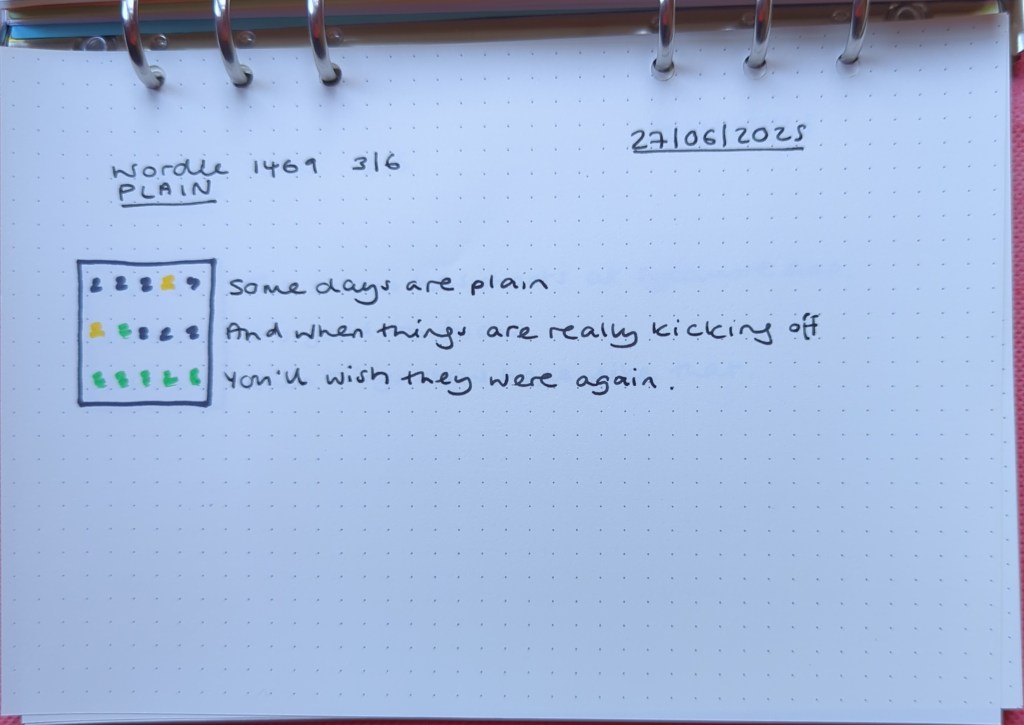 27/06/2025
Wordle 1469 3/6
PLAIN
Some days are plain
And when things are really kicking off
You'll wish they were again.